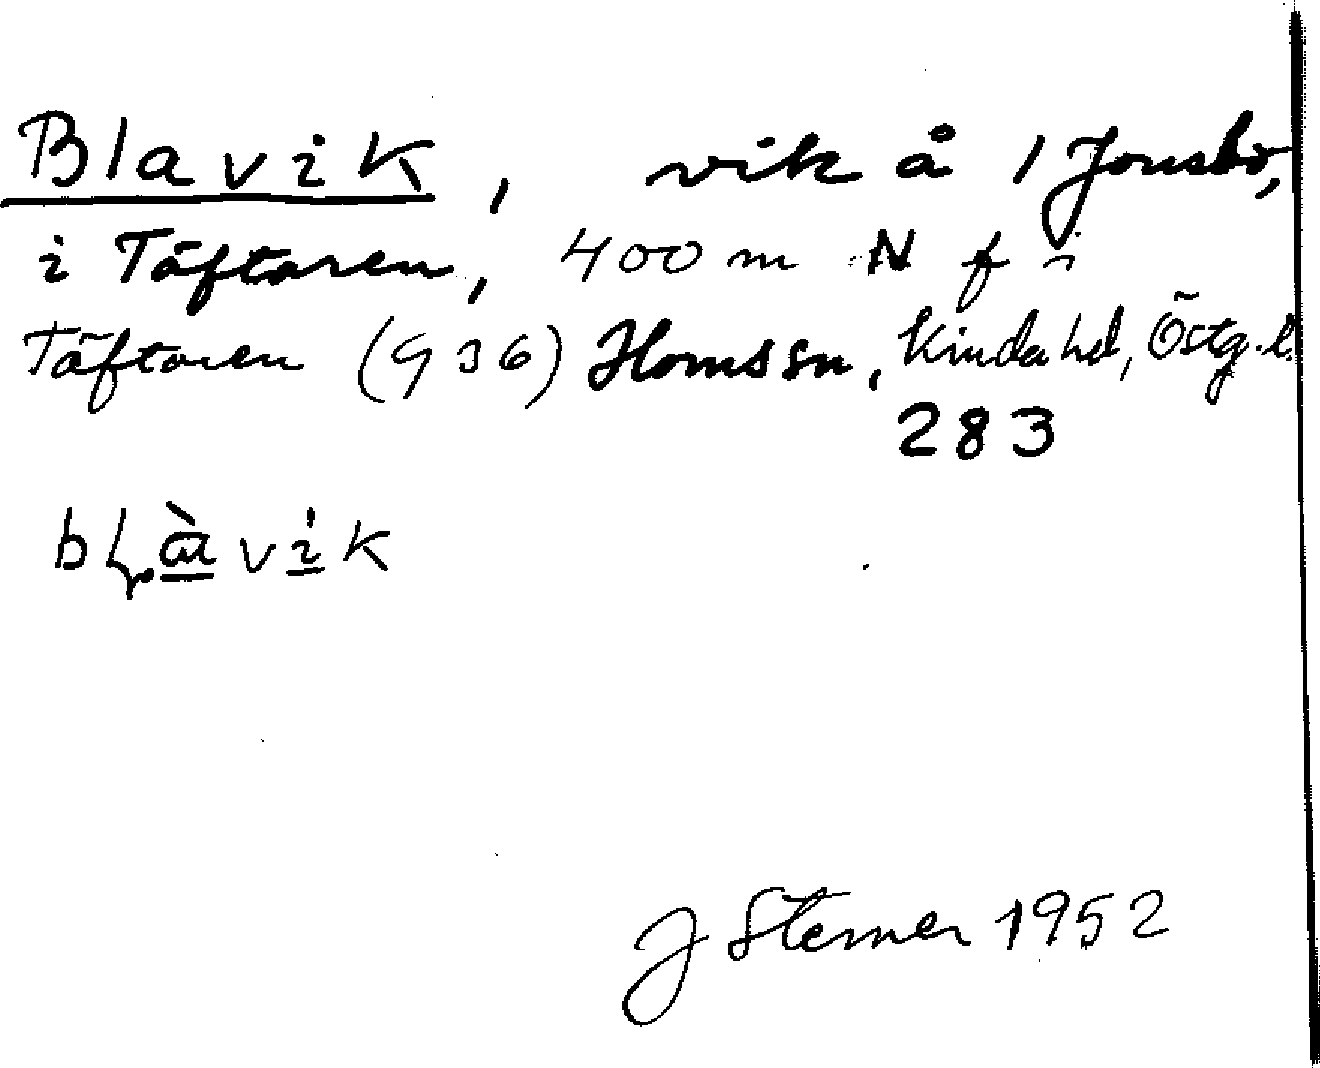 Blavik, vik å 1 Jonsbo,
i Täftaren, 400 m N f i
Täftaren (936) Horns sn, Kinda hd, Östg. l.
283
J Sterner 1952